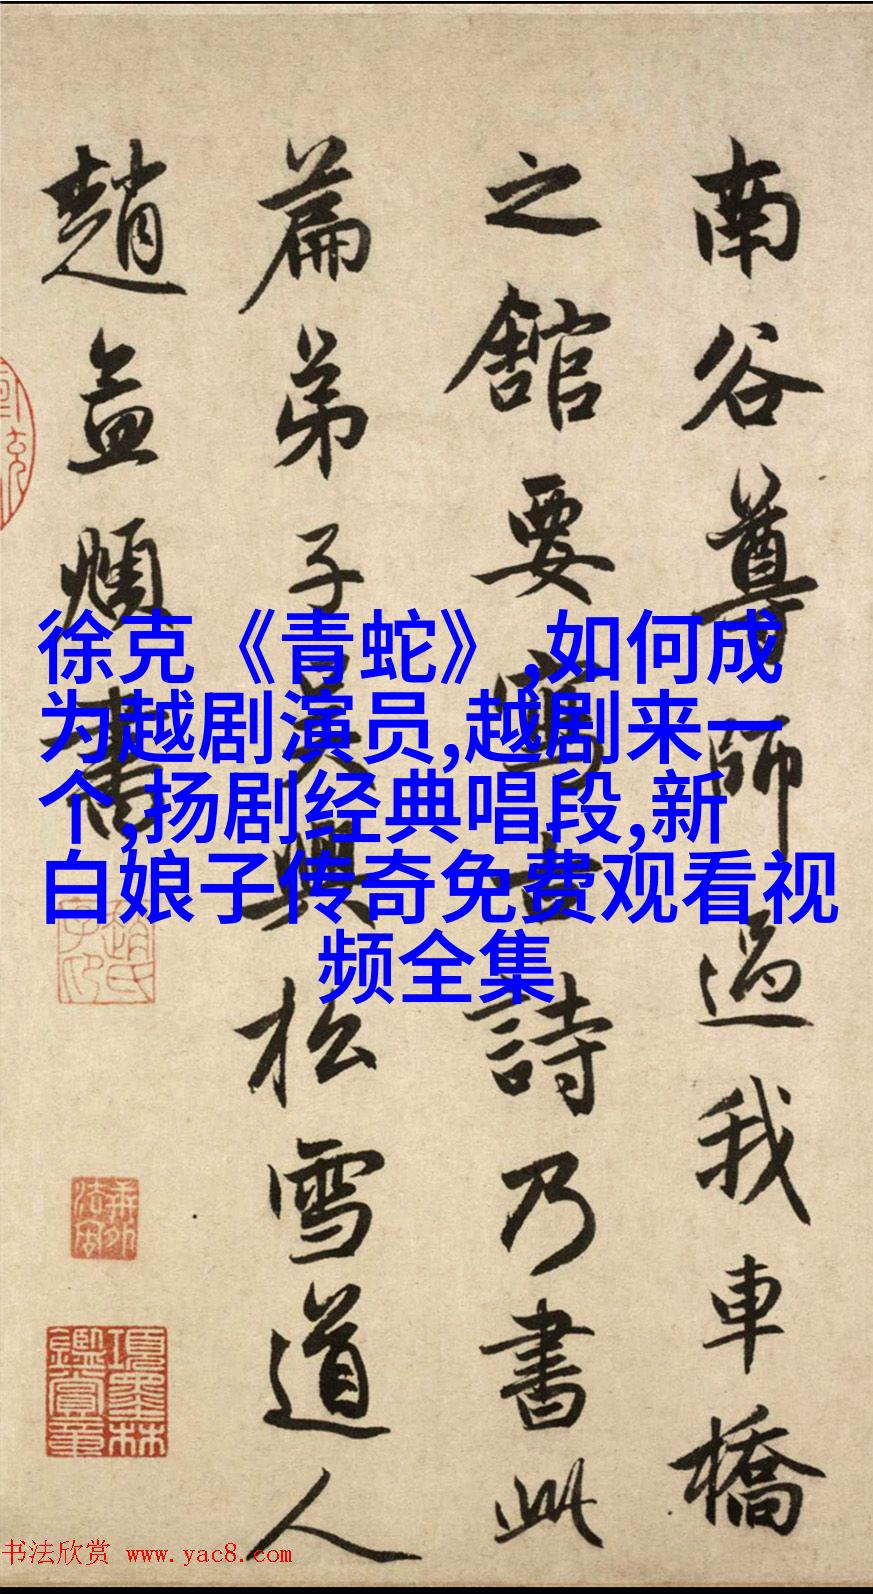 南谷尊師過我車橋
之舘要寫古詩乃書此
篇弟子吴興松雪道人
趙孟頫書
徐克《青蛇》,如何成
为越剧演员,越剧来一
个,扬剧经典唱段,新
白娘子传奇免费观看视
频全集
项墨林鑑賞章
书法欣赏 www.yac8.com